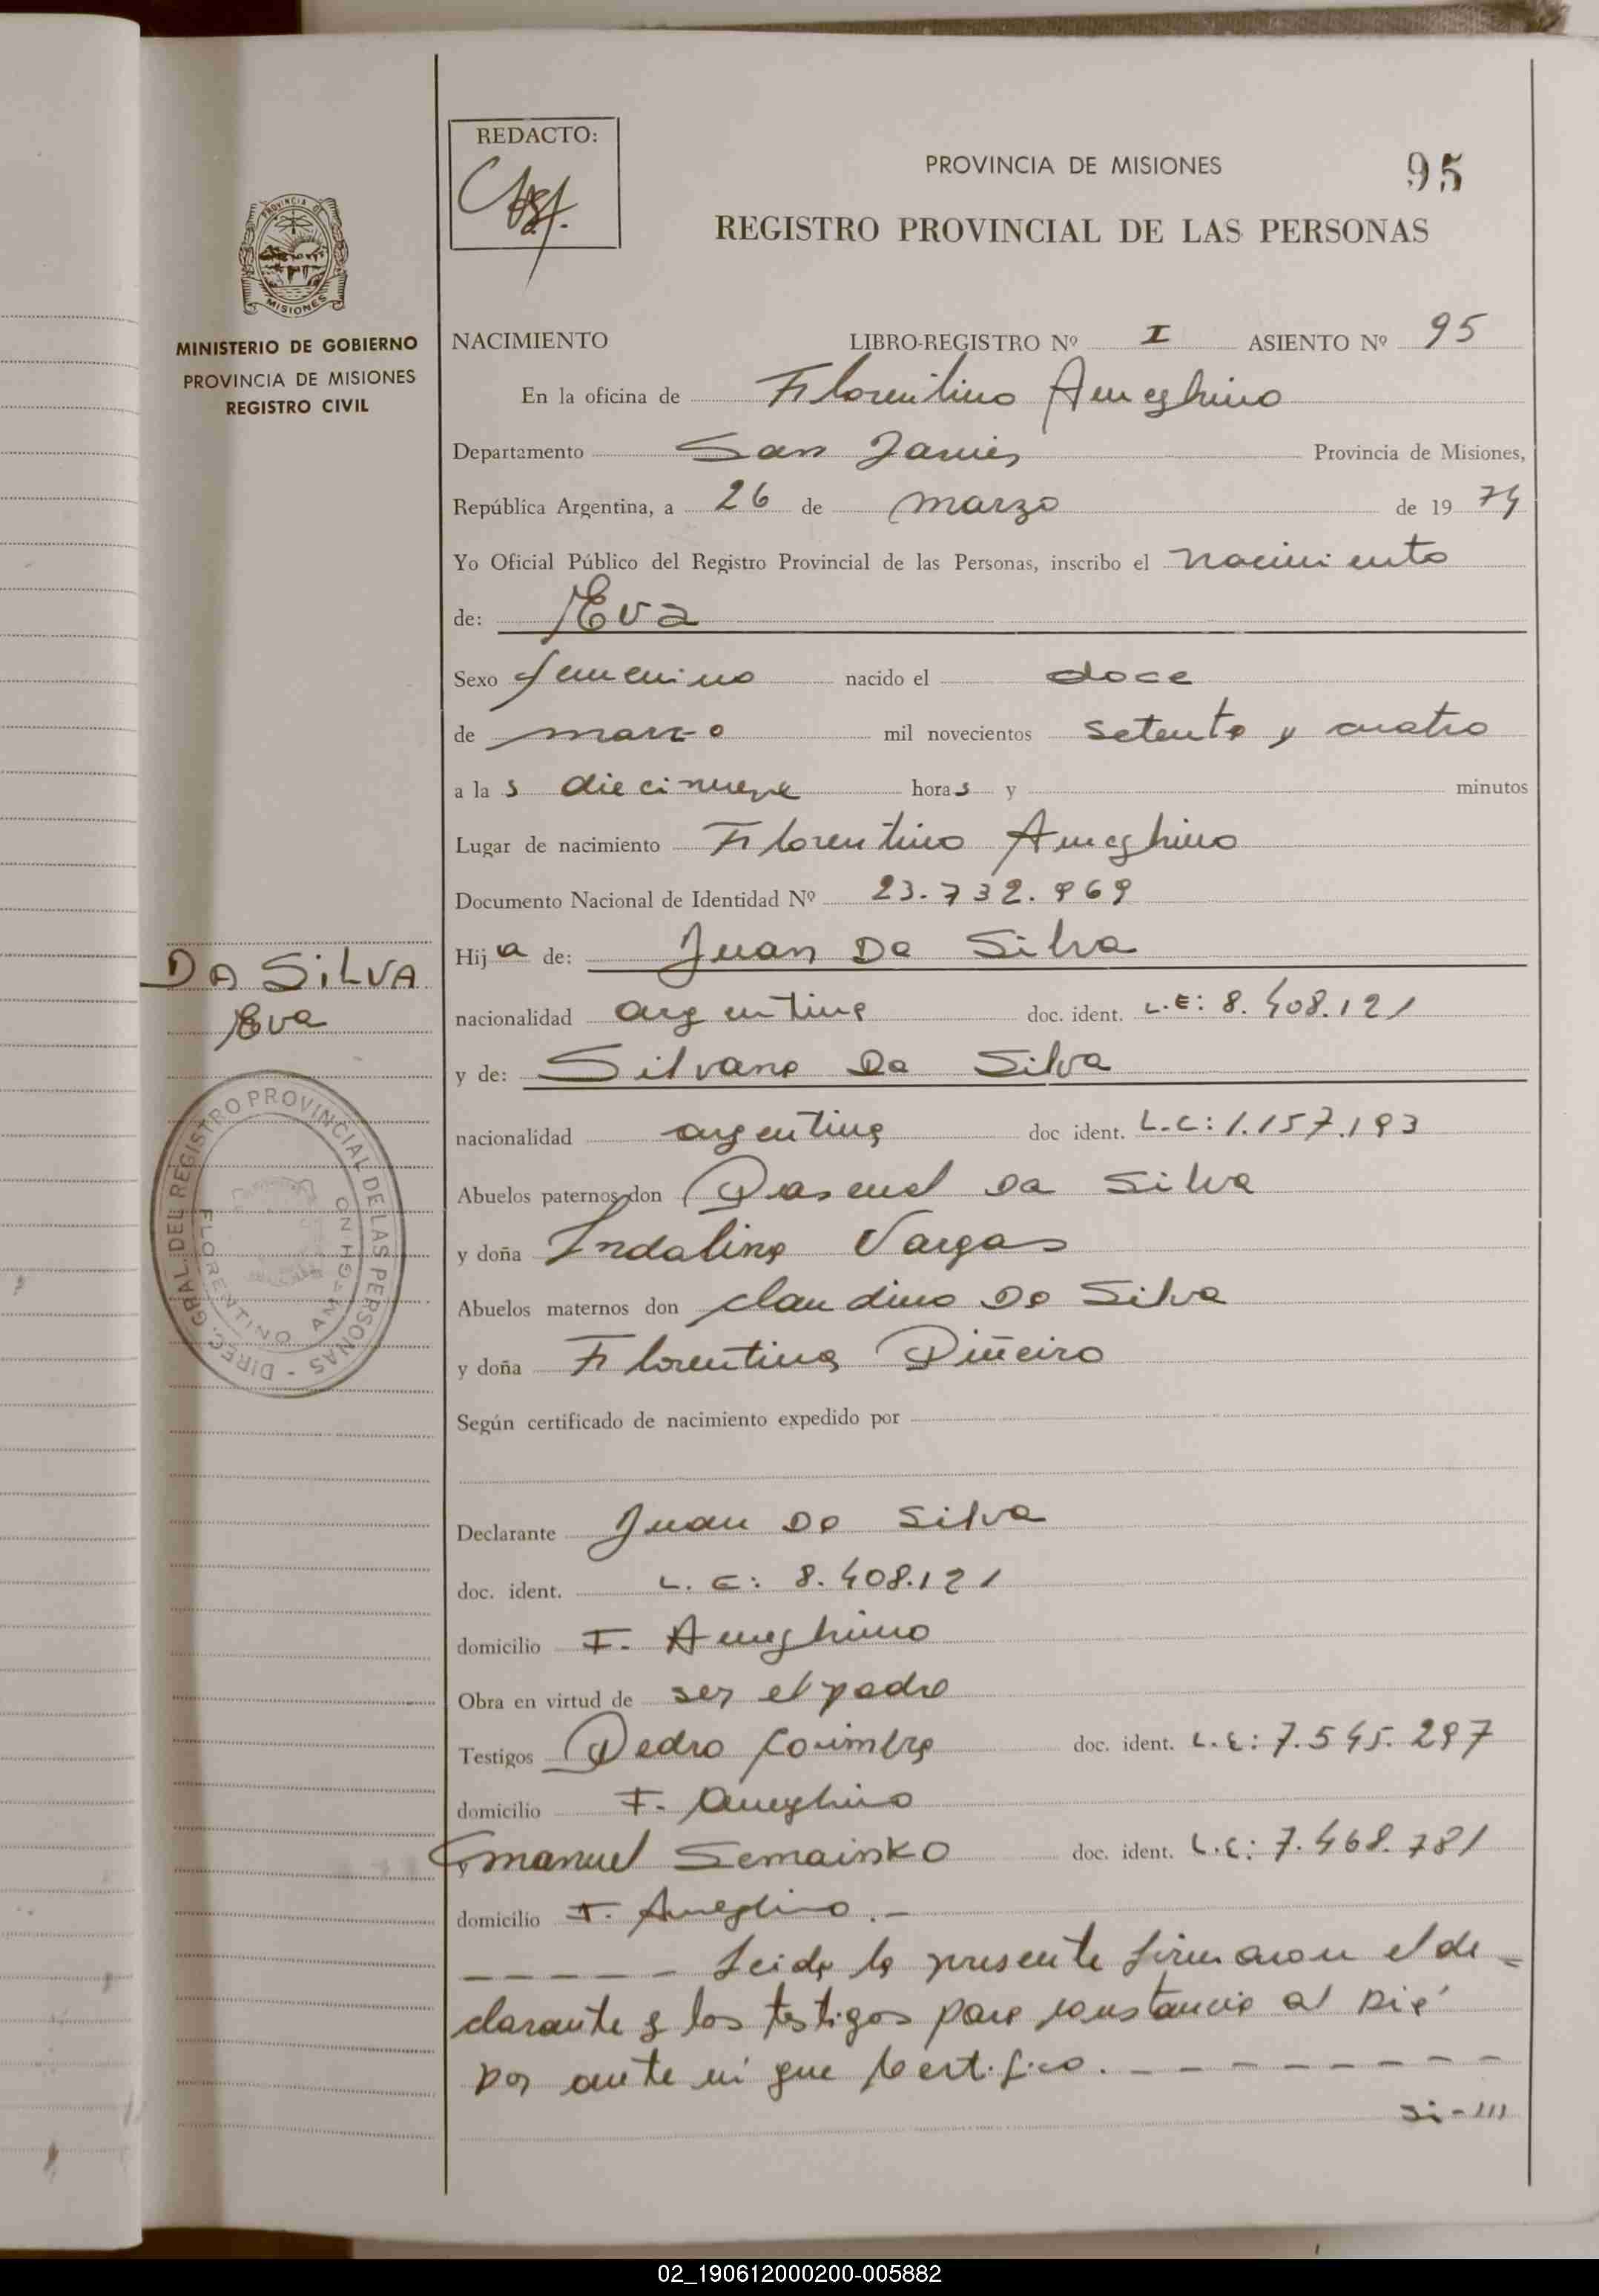 REDACTO:
PROVINCIA DE MISIONES
95
REGISTRO PROVINCIAL DE LAS PERSONAS
PROVINCIA DE
MISIONES
MINISTERIO DE GOBIERNO
PROVINCIA DE MISIONES
REGISTRO CIVIL
NACIMIENTO LIBRO-REGISTRO Nº I ASIENTO Nº 95
En la oficina de Florentino Ameghino
Departamento San Javier Provincia de Misiones,
República Argentina, a 26 de marzo de 19 74
Yo Oficial Público del Registro Provincial de las Personas, inscribo el nacimiento
de: Eva
Sexo femenino nacido el doce
de marzo mil novecientos setenta y cuatro
a la s diecinueve hora s y minutos
Lugar de nacimiento Florentino Ameghino
Documento Nacional de Identidad Nº 23.732.969
Hij a de: Juan Da Silva
nacionalidad argentina doc. ident. L.E: 8.408.121
y de: Silvana Da Silva
nacionalidad argentina doc ident. L.C: 1.157.193
Abuelos paternos don Pascual Da Silva
y doña Indalina Vargas
Abuelos maternos don Claudino Da Silva
y doña Florentina Piñeiro
Según certificado de nacimiento expedido por
Declarante Juan Da Silva
doc. ident. L.E: 8.408.121
domicilio F. Ameghino
Obra en virtud de ser el padre
Testigos Pedro Coimbra doc. ident. L.E: 7.545.297
domicilio F. Ameghino
y Emanuel Semainko doc. ident. L.E: 7.468.781
domicilio F. Ameghino.-
- - - - - Leida la presente firmaron el de=
clarante y los testigos para constancia al pié
por ante mi que certifico. - - - - - - - - -
si-///
DA SILVA
Eva
DIREC. GRAL. DEL REGISTRO PROVINCIAL DE LAS PERSONAS -
FLORENTINO AMEGHINO
02_190612000200-005882